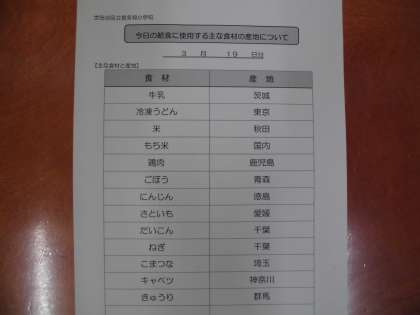 今日の給食に使用する主な食材の産地について
3 月 19 日分
【主な食材と産地】
食 材 産 地
牛乳 茨城
冷凍うどん 東京
米 秋田
もち米 国内
鶏肉 鹿児島
ごぼう 青森
にんじん 徳島
さといも 愛媛
だいこん 千葉
ねぎ 千葉
こまつな 埼玉
キャベツ 神奈川
きゅうり 群馬